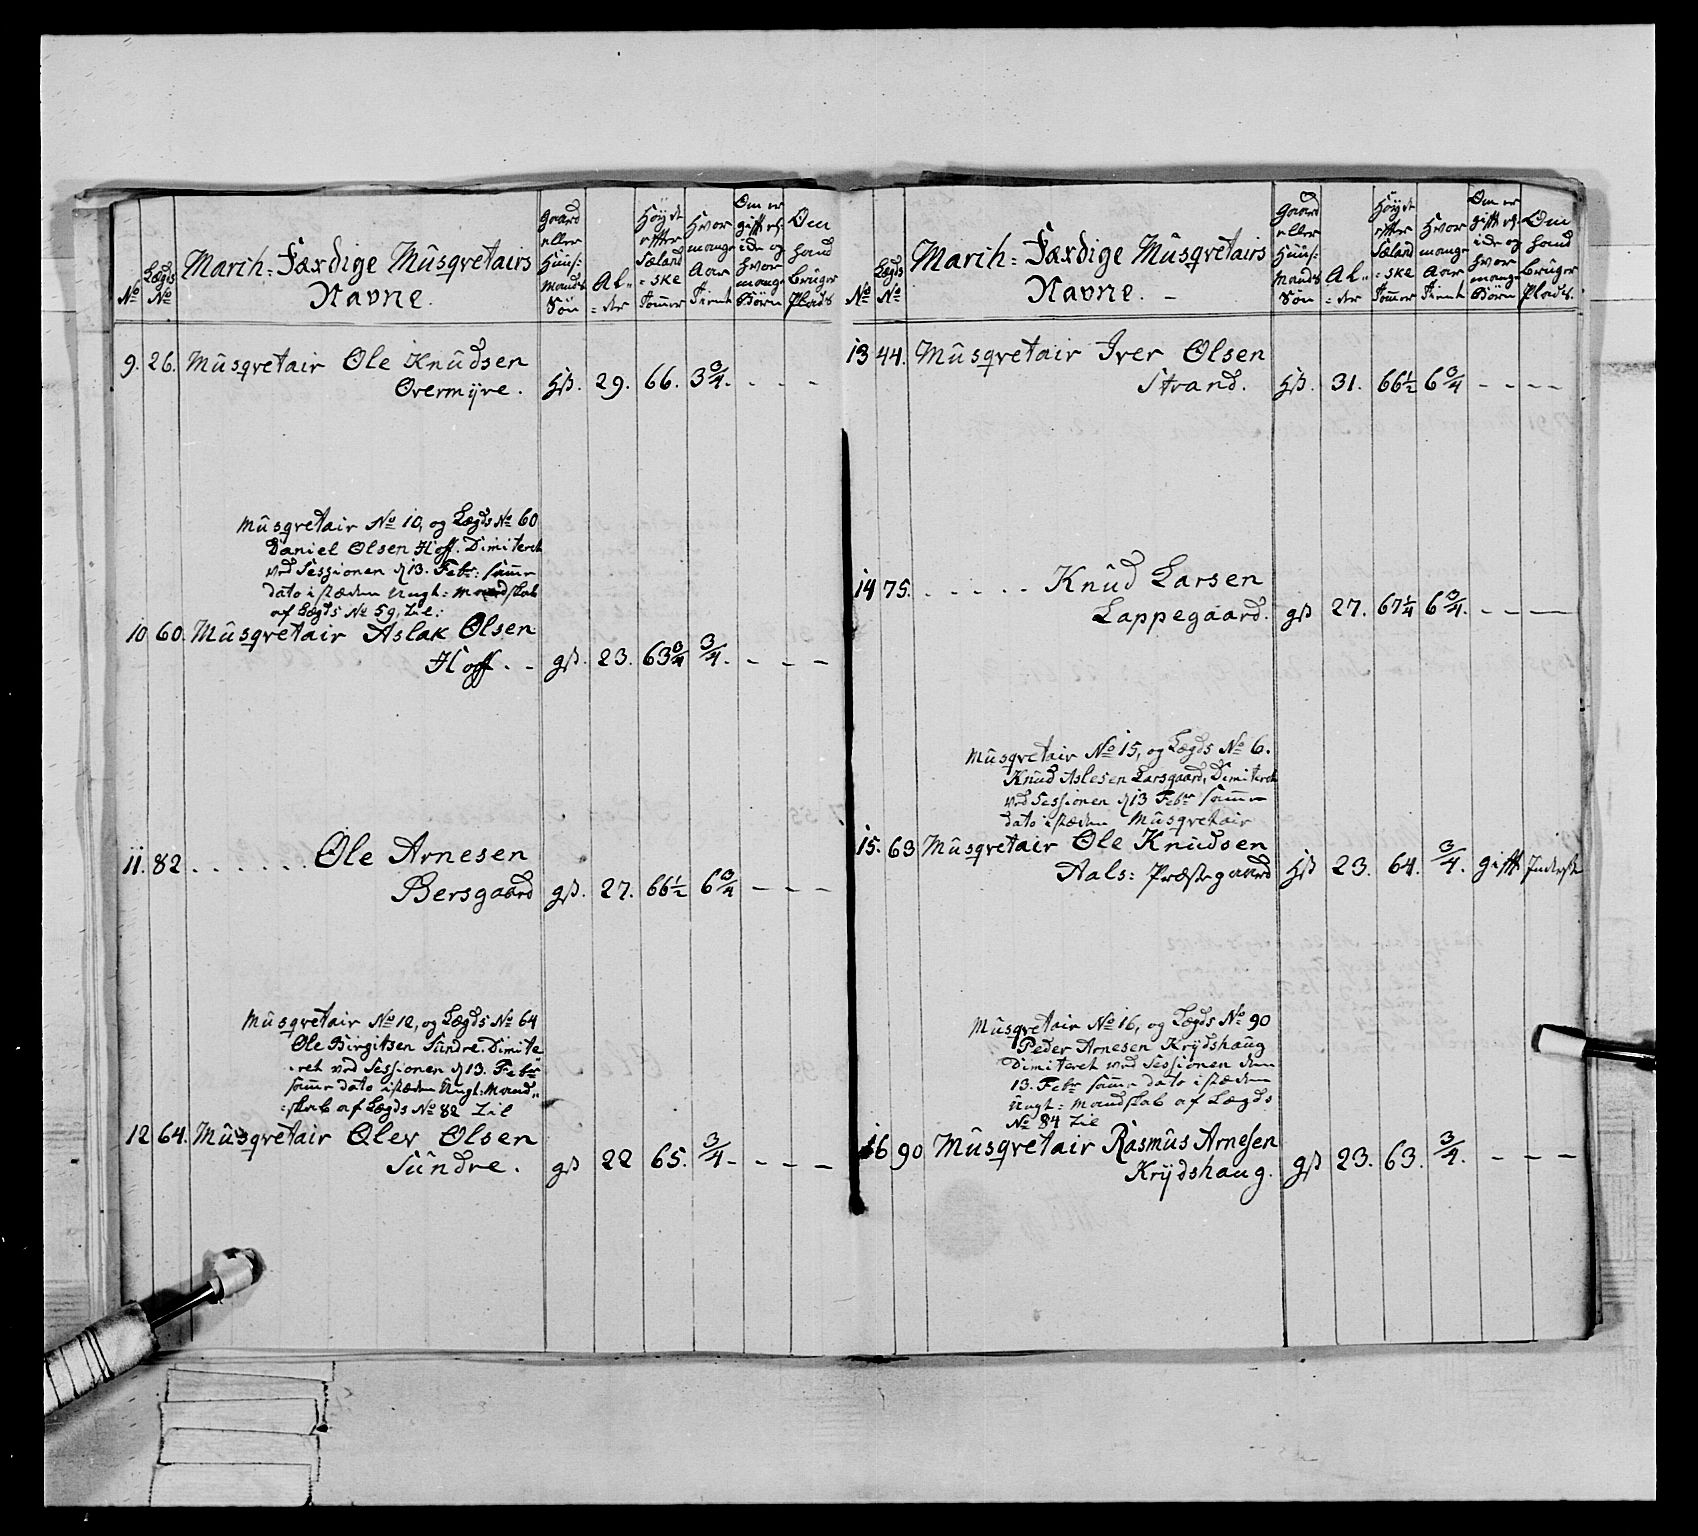 No
Lægds No
March: Færdige Musqvetairs
Navne.
Gaard eller Huus: Mands Søn
Al- der
Høyde efter Sælands ske Tommer
Hvor mange Aar Tient
Om er gift ell. ide og hvor mange Børn
Om hand bruger Plads
9. 26. Musqvetair Ole Knudsen
Overmÿre. Hß. 29. 66. 3 3/4. - - -
Musqvetair No 10, og Lægds No 60
Daniel Olsen Hoff. Dimiteret
ved Sessionen d 13. Febr: samme
dato i stæden Ungt: Mandskab
af Lægds No 59. Zil:
10 60. Musqvetair Aslak Olsen
Hoff. - gß. 23. 63 3/4 3/4. - - -
11. 82 . . . . . . Ole Arnesen
Bersgaard gß. 27. 66 1/2 6 3/4 - - -
Musqvetair No 12, og Lægds No 64
Ole Birgitsen Sundre. Dimite
ret ved Sessionen d 13. Febr
samme dato i stæden Ungt: Mand„
:skab af Lægds No 82 Zil
12 64. Musqvetair Olev Olsen
Sundre. gß 22 65. 3/4 - - - -
No
Lægds No
March: Færdige Musqvetairs
Navne. -
Gaard eller Huus: Mands Søn
Al„ = der
Høyde efter Sæland = ske Tommer
Hvor mange Aar Tient
Om er gift ell. ide og hvor mange Børn
Om hand bruger Plads.
13 44. Musqvetair Iver Olsen
Strand. Hß. 31. 66 1/2 6 3/4 - - - -
14 75. . . . . . Knud Larsen
Lappegaard. gß 27. 67 1/4 6 3/4. - - -
Musqvetair No 15, og Lægds No 6.
Knud Aslesen Larsgaard, Dimiteret
ved Sessionen d 13 Febr samme
dato i stæden Musqvetair
15. 63 Musqvetair Ole Knudsen
Aals: Præstegaard Hß 23. 64. 3/4. gift Inderst
Musqvetair No 16, og Lægds No 90
Peder Arnesen Krÿdshaug
Dimiteret ved Sessionen den
13. Febr samme dato i stæden
Ungt: Mandskab af Lægds
No 84 Zil
16 90 Musqvetair Rasmus Arnesen
Krÿdshaug. gß 23. 63. 3/4. - - -